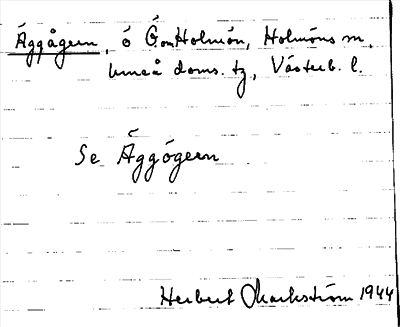 Äggågern, ö Ö om Holmön, Holmöns sn,
Umeå doms. tg, Västerb. l.
Se Äggögern
Herbert Markström 1944